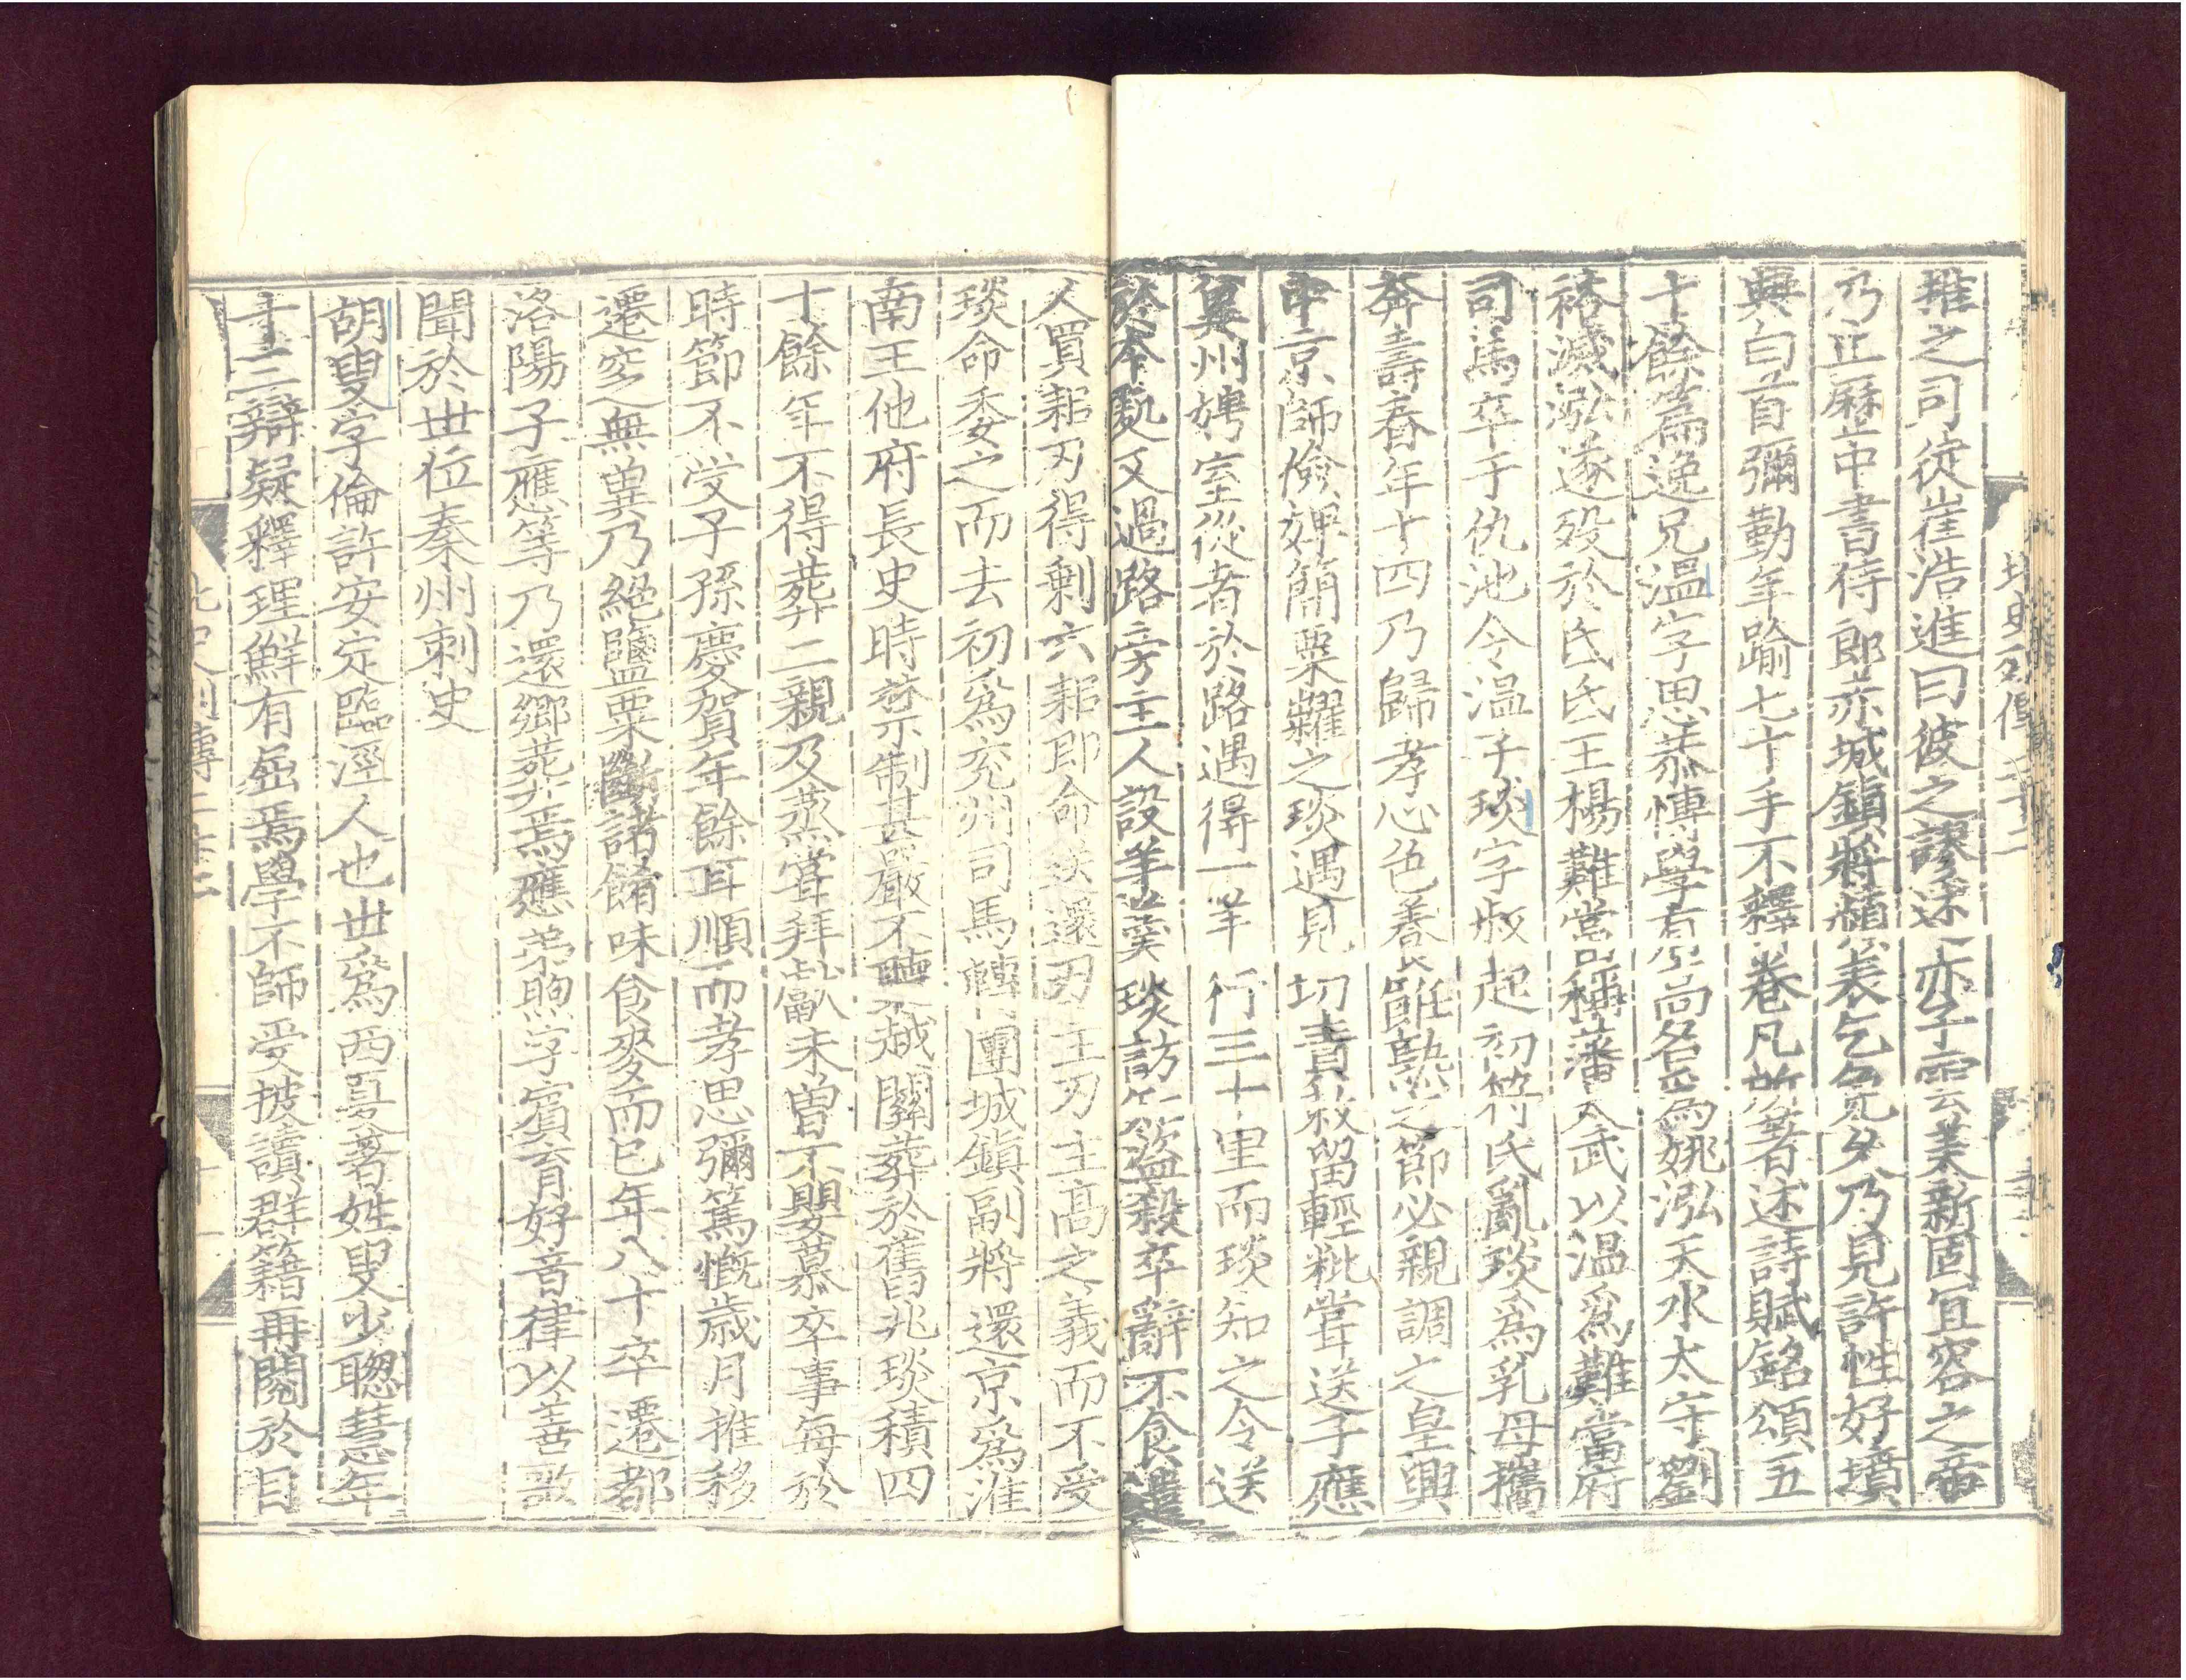 推之司徒崔浩進曰彼之謬述亦子雲美新固宜容之帝
乃止歷中書侍郎赤城鎮將頻表乞免久乃見許性好墳
典白首彌勤年踰七十手不釋卷凡所著述詩賦銘頌五
十餘篇逸兄溫字思恭博學有高名為姚泓天水太守劉
裕滅泓遂歿於氐氐王楊難當稱藩太武以溫爲難當府
司馬卒于仇池令溫子琰字叔起初苻氏亂琰爲乳母攜
奔壽春年十四乃歸孝心色養飪熟之節必親調之皇興
中京師儉婢簡粟糶之琰遇見切責敕留輕粃嘗送子應
冀州娉室從者於路遇得一羊行三十里而琰知之令送
於本處又過路旁主人設羊羹琰訪知盜殺卒辭不食遣
人買耜刃得剩六耜即命送還刃主刃主高之義而不受
琰命委之而去初爲兗州司馬轉團城鎮副將還京爲淮
南王他府長史時禁制甚嚴不聽越關葬於舊兆琰積四
十餘年不得葬二親及蒸嘗拜獻未曾不嬰慕卒事每於
時節不受子孫慶賀年餘耳順而孝思彌篤慨歲月推移
遷窆無冀乃絕鹽粟斷諸餚味食麥而已年八十卒遷都
洛陽子應等乃還鄉葬焉應弟煦字賓育好音律以善歌
聞於世位秦州刺史
胡叟字倫許安定臨涇人也世爲西夏著姓叟少聰慧年
十三辯疑釋理鮮有屈焉學不師受披讀群籍再閱於目
北史列傳二十二